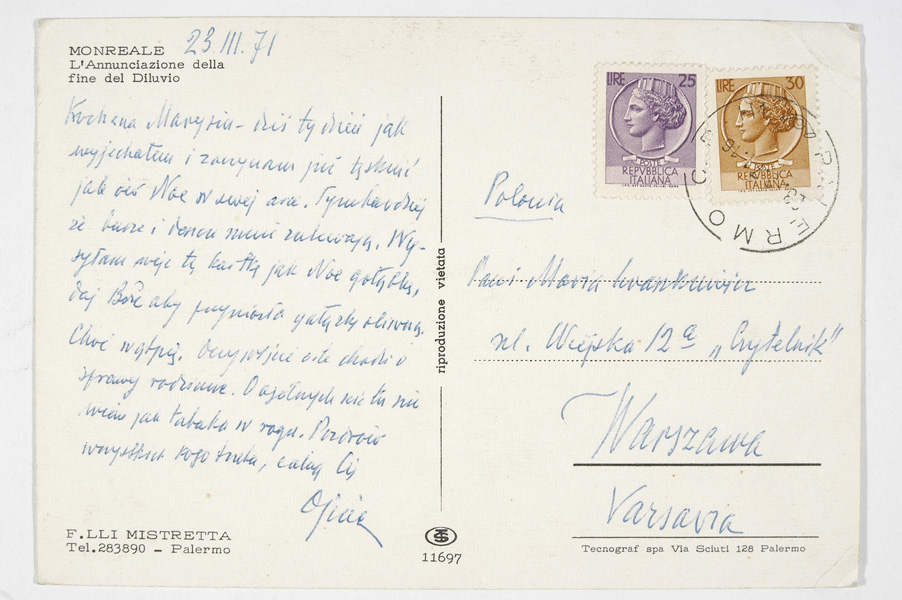 MONREALE
L'Annunciazione della
fine del Diluvio
23.III.71
Kochana Marysiu - dziś tydzień jak
wyjechałem i zaczynam już tęsknić
jak ów Noe w swej arce. Tym bardziej
że burze i deszcze mnie zalewają. Wy-
syłam więc tę kartkę jak Noe gołąbkę,
daj Boże aby przyniosła gałązkę oliwną.
Choć wątpię. Oczywiście chodzi o
sprawy rodzinne. O ogólnych nic tu nie
wiem jak tabaka w rogu. Pozdrów
wszystkich kogo trzeba, całuję Cię
Ojciec
F.LLI MISTRETTA
Tel.283890 - Palermo
riproduzione vietata
11697
LIRE 25
POSTE
REPVBBLICA
ITALIANA
LIRE 30
POSTE
REPVBBLICA
ITALIANA
PALERMO
Polonia
Pani Maria Iwaszkiewicz
ul. Wiejska 12a "Czytelnik"
Warszawa
Varsavia
Tecnograf spa Via Sciuti 128 Palermo